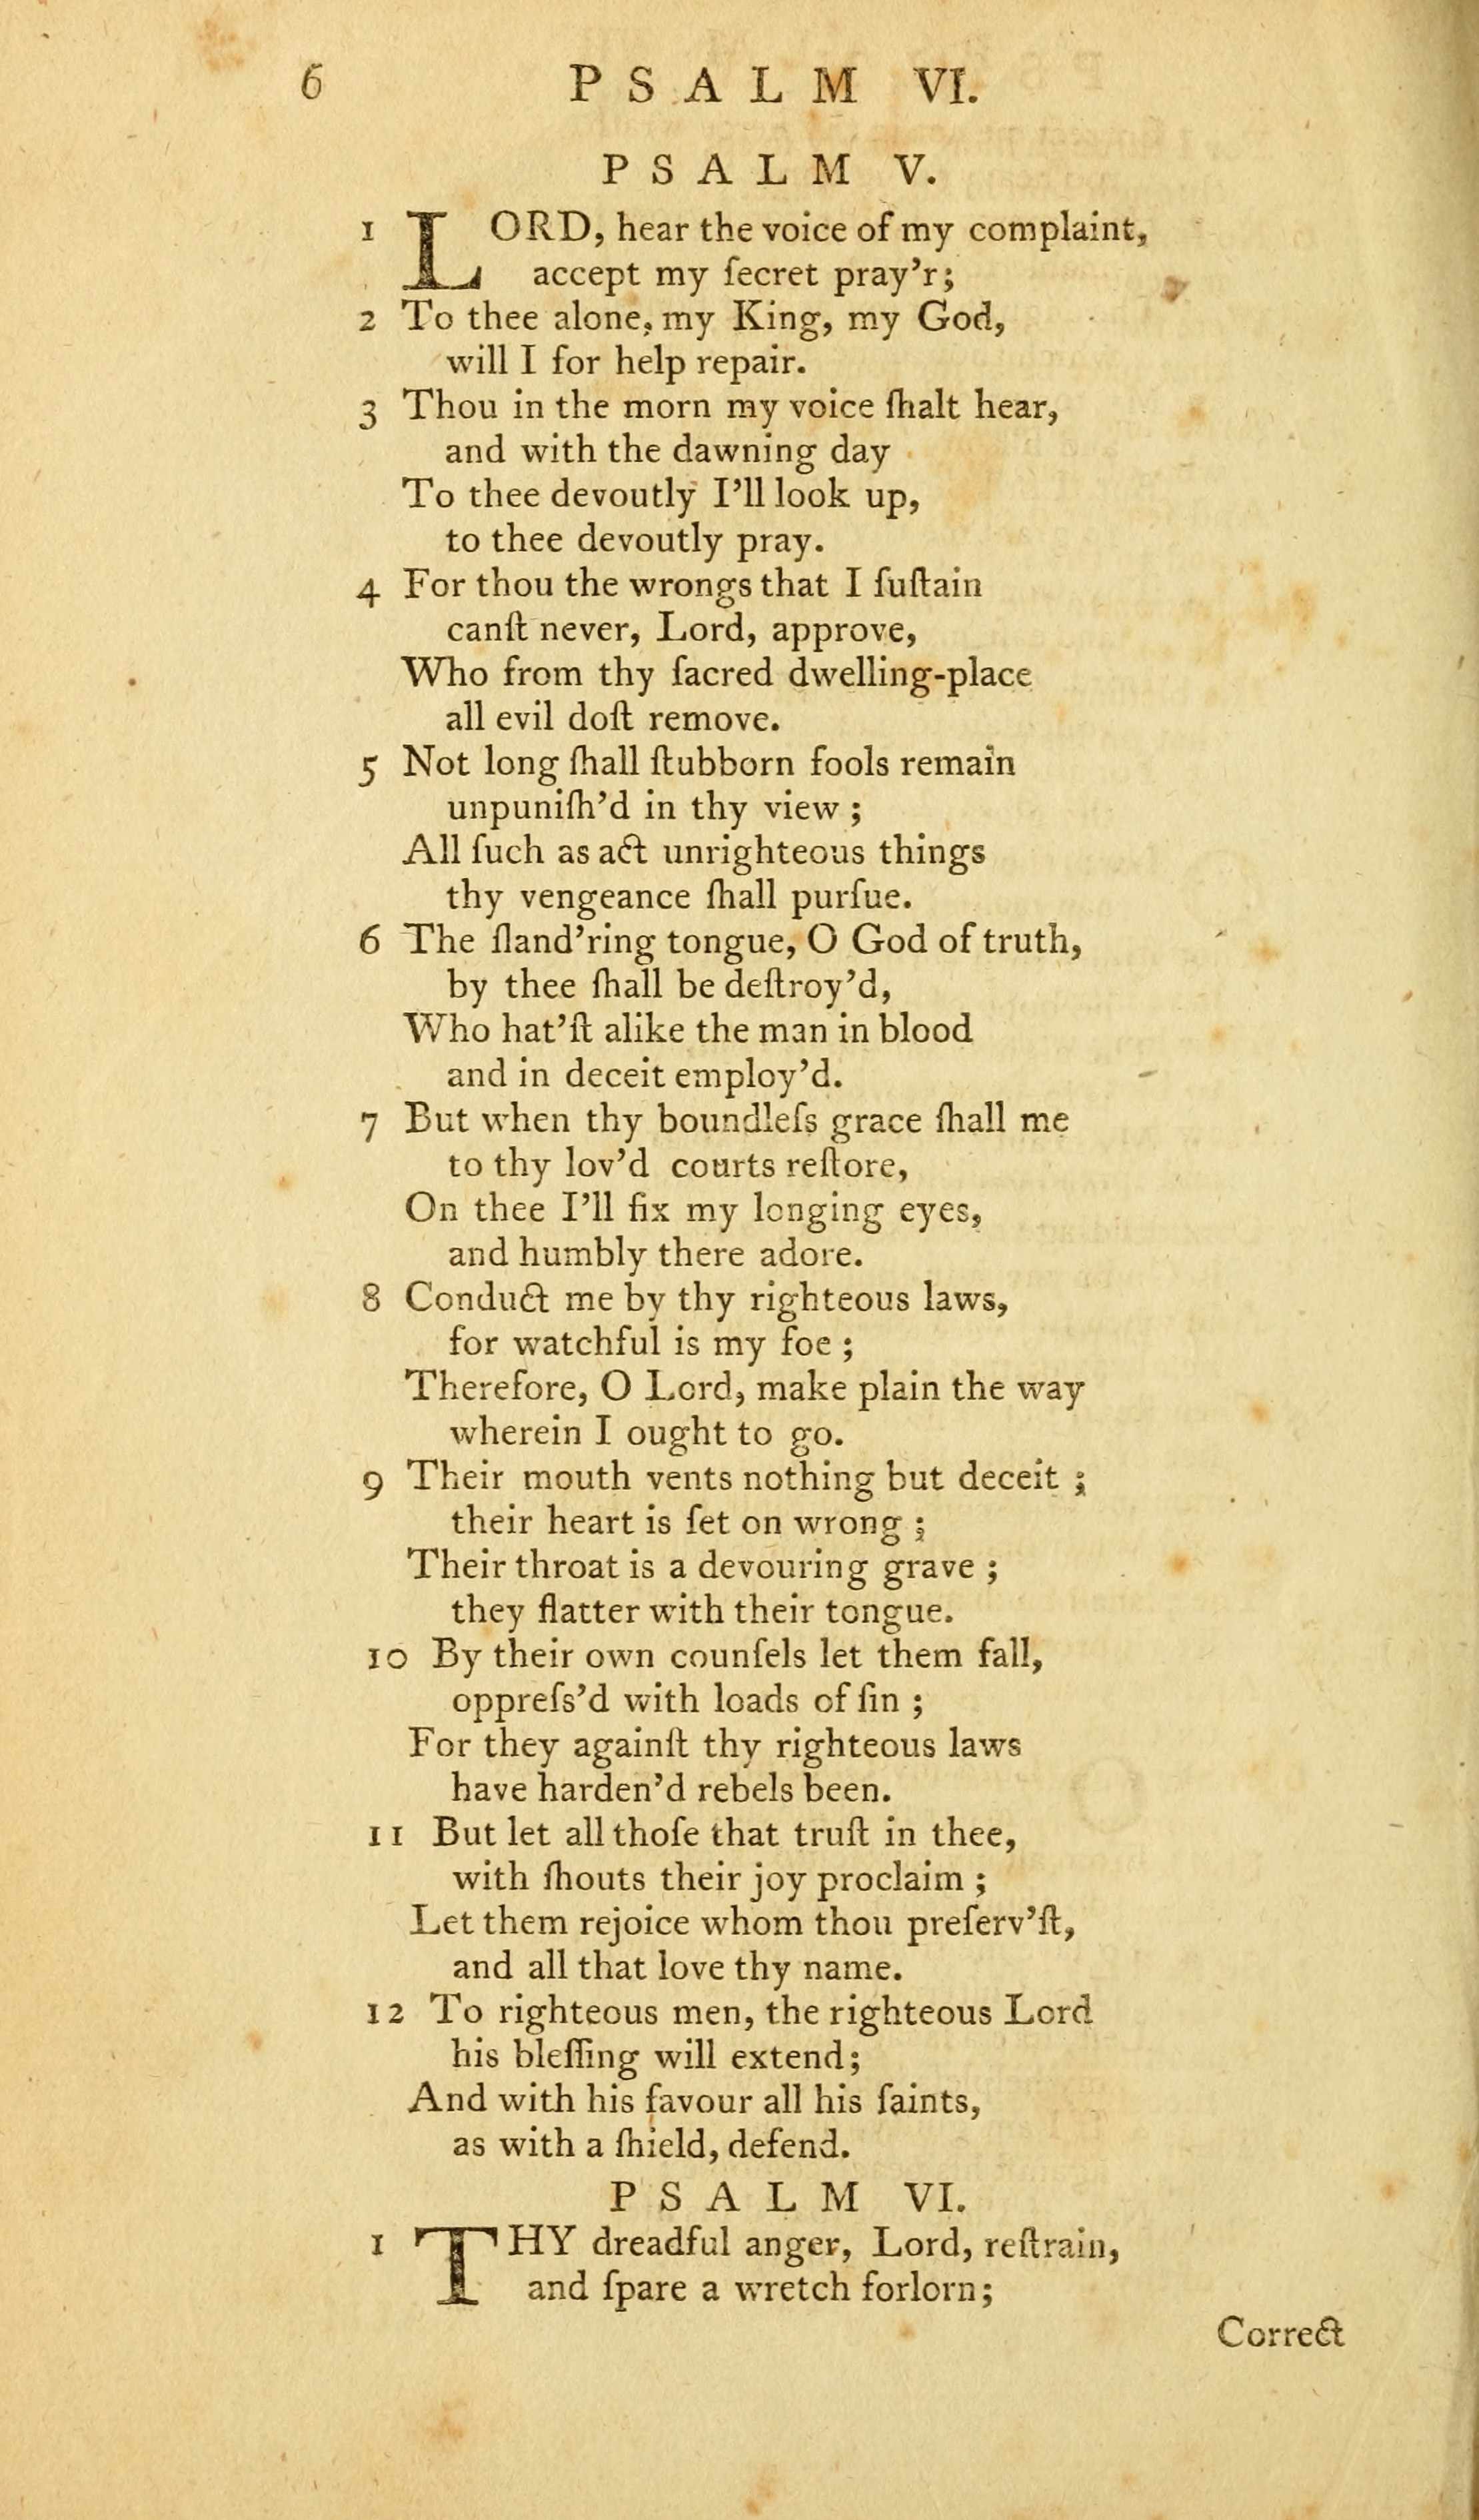 6 PSALM VI.
PSALM V.
1 LORD, hear the voice of my complaint,
accept my ſecret pray'r;
2 To thee alone, my King, my God,
will I for help repair.
3 Thou in the morn my voice ſhalt hear,
and with the dawning day
To thee devoutly I'll look up,
to thee devoutly pray.
4 For thou the wrongs that I ſuſtain
canſt never, Lord, approve,
Who from thy ſacred dwelling-place
all evil doſt remove.
5 Not long ſhall ſtubborn fools remain
unpuniſh'd in thy view ;
All ſuch as act unrighteous things
thy vengeance ſhall purſue.
6 The ſland'ring tongue, O God of truth,
by thee ſhall be deſtroy'd,
Who hat'ſt alike the man in blood
and in deceit employ'd.
7 But when thy boundleſs grace ſhall me
to thy lov'd courts reſtore,
On thee I'll fix my longing eyes,
and humbly there adore.
8 Conduct me by thy righteous laws,
for watchful is my foe ;
Therefore, O Lord, make plain the way
wherein I ought to go.
9 Their mouth vents nothing but deceit ;
their heart is ſet on wrong ;
Their throat is a devouring grave ;
they flatter with their tongue.
10 By their own counſels let them fall,
oppreſs'd with loads of ſin ;
For they againſt thy righteous laws
have harden'd rebels been.
11 But let all thoſe that truſt in thee,
with ſhouts their joy proclaim ;
Let them rejoice whom thou preſerv'ſt,
and all that love thy name.
12 To righteous men, the righteous Lord
his bleſſing will extend;
And with his favour all his ſaints,
as with a ſhield, defend.
PSALM VI.
1 THY dreadful anger, Lord, reſtrain,
and ſpare a wretch forlorn;
Correct